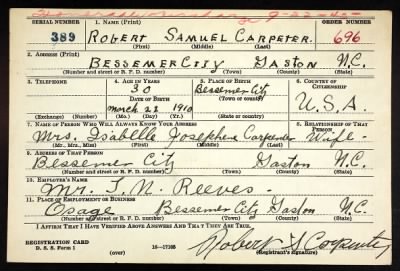 9-22-4
SERIAL NUMBER 1. NAME (Print) ORDER NUMBER
389 ROBERT SAMUEL CARPETER. 696
(First) (Middle) (Last)
2. ADDRESS (Print)
BESSEMER CITY GASTON N.C.
(Number and street or R. F. D. number) (Town) (County) (State)
3. TELEPHONE 4. AGE IN YEARS 5. PLACE OF BIRTH 6. COUNTRY OF CITIZENSHIP
30 Bessemer City
DATE OF BIRTH (Town or county)
March 22 1910 U.S.A.
(Exchange) (Number) (Mo.) (Day) (Yr.) (State or country)
7. NAME OF PERSON WHO WILL ALWAYS KNOW YOUR ADDRESS 8. RELATIONSHIP OF THAT PERSON
Mrs. Isabelle Josephene Carpenter Wife
(Mr., Mrs., Miss) (First) (Middle) (Last)
9. ADDRESS OF THAT PERSON
Bessemer City Gaston N.C.
(Number and street or R. F. D. number) (Town) (County) (State)
10. EMPLOYER'S NAME
Mr. T. N. Reeves.
11. PLACE OF EMPLOYMENT OR BUSINESS
Osage Bessemer City Gaston N.C.
(Number and street or R. F. D. number) (Town) (County) (State)
I AFFIRM THAT I HAVE VERIFIED ABOVE ANSWERS AND THAT THEY ARE TRUE.
REGISTRATION CARD
D. S. S. Form 1 (over) 16—17105 (Registrant's signature)
Robert S Carpenter